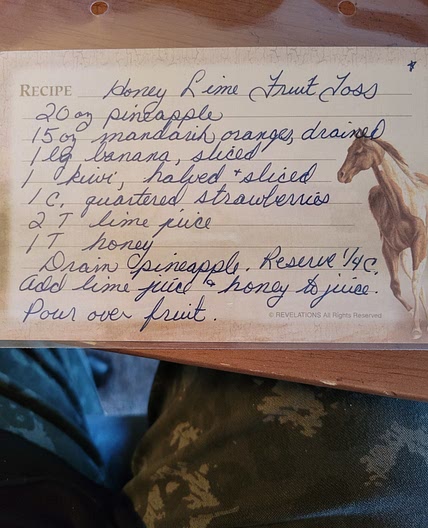 *
RECIPE Honey Lime Fruit Toss
20 oz pineapple
15 oz mandarin oranges, drained
1 lg banana, sliced
1 kiwi, halved + sliced
1 C. quartered strawberries
2 T lime juice
1 T honey
Drain pineapple. Reserve 1/4 C.
Add lime juice & honey to juice.
Pour over fruit.
© REVELATIONS All Rights Reserved